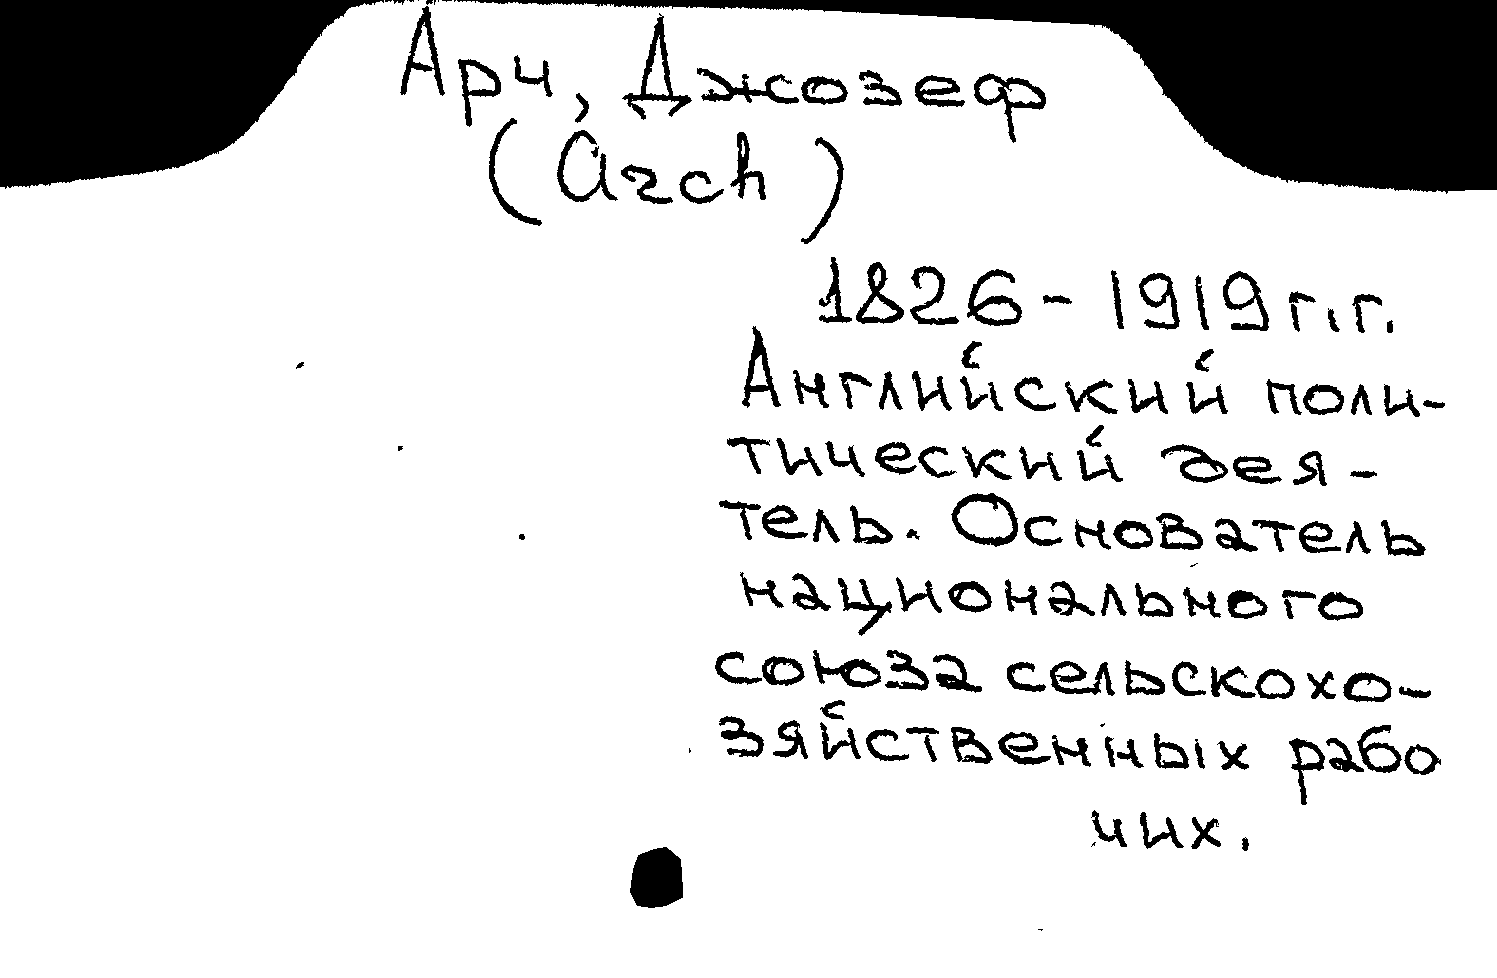 Арч, Джозеф
(Arch)
1826-1919г.г.
Английский поли-
тический дея-
тель. Основатель
национального
союза сельскохо-
зяйственных рабо
чих.